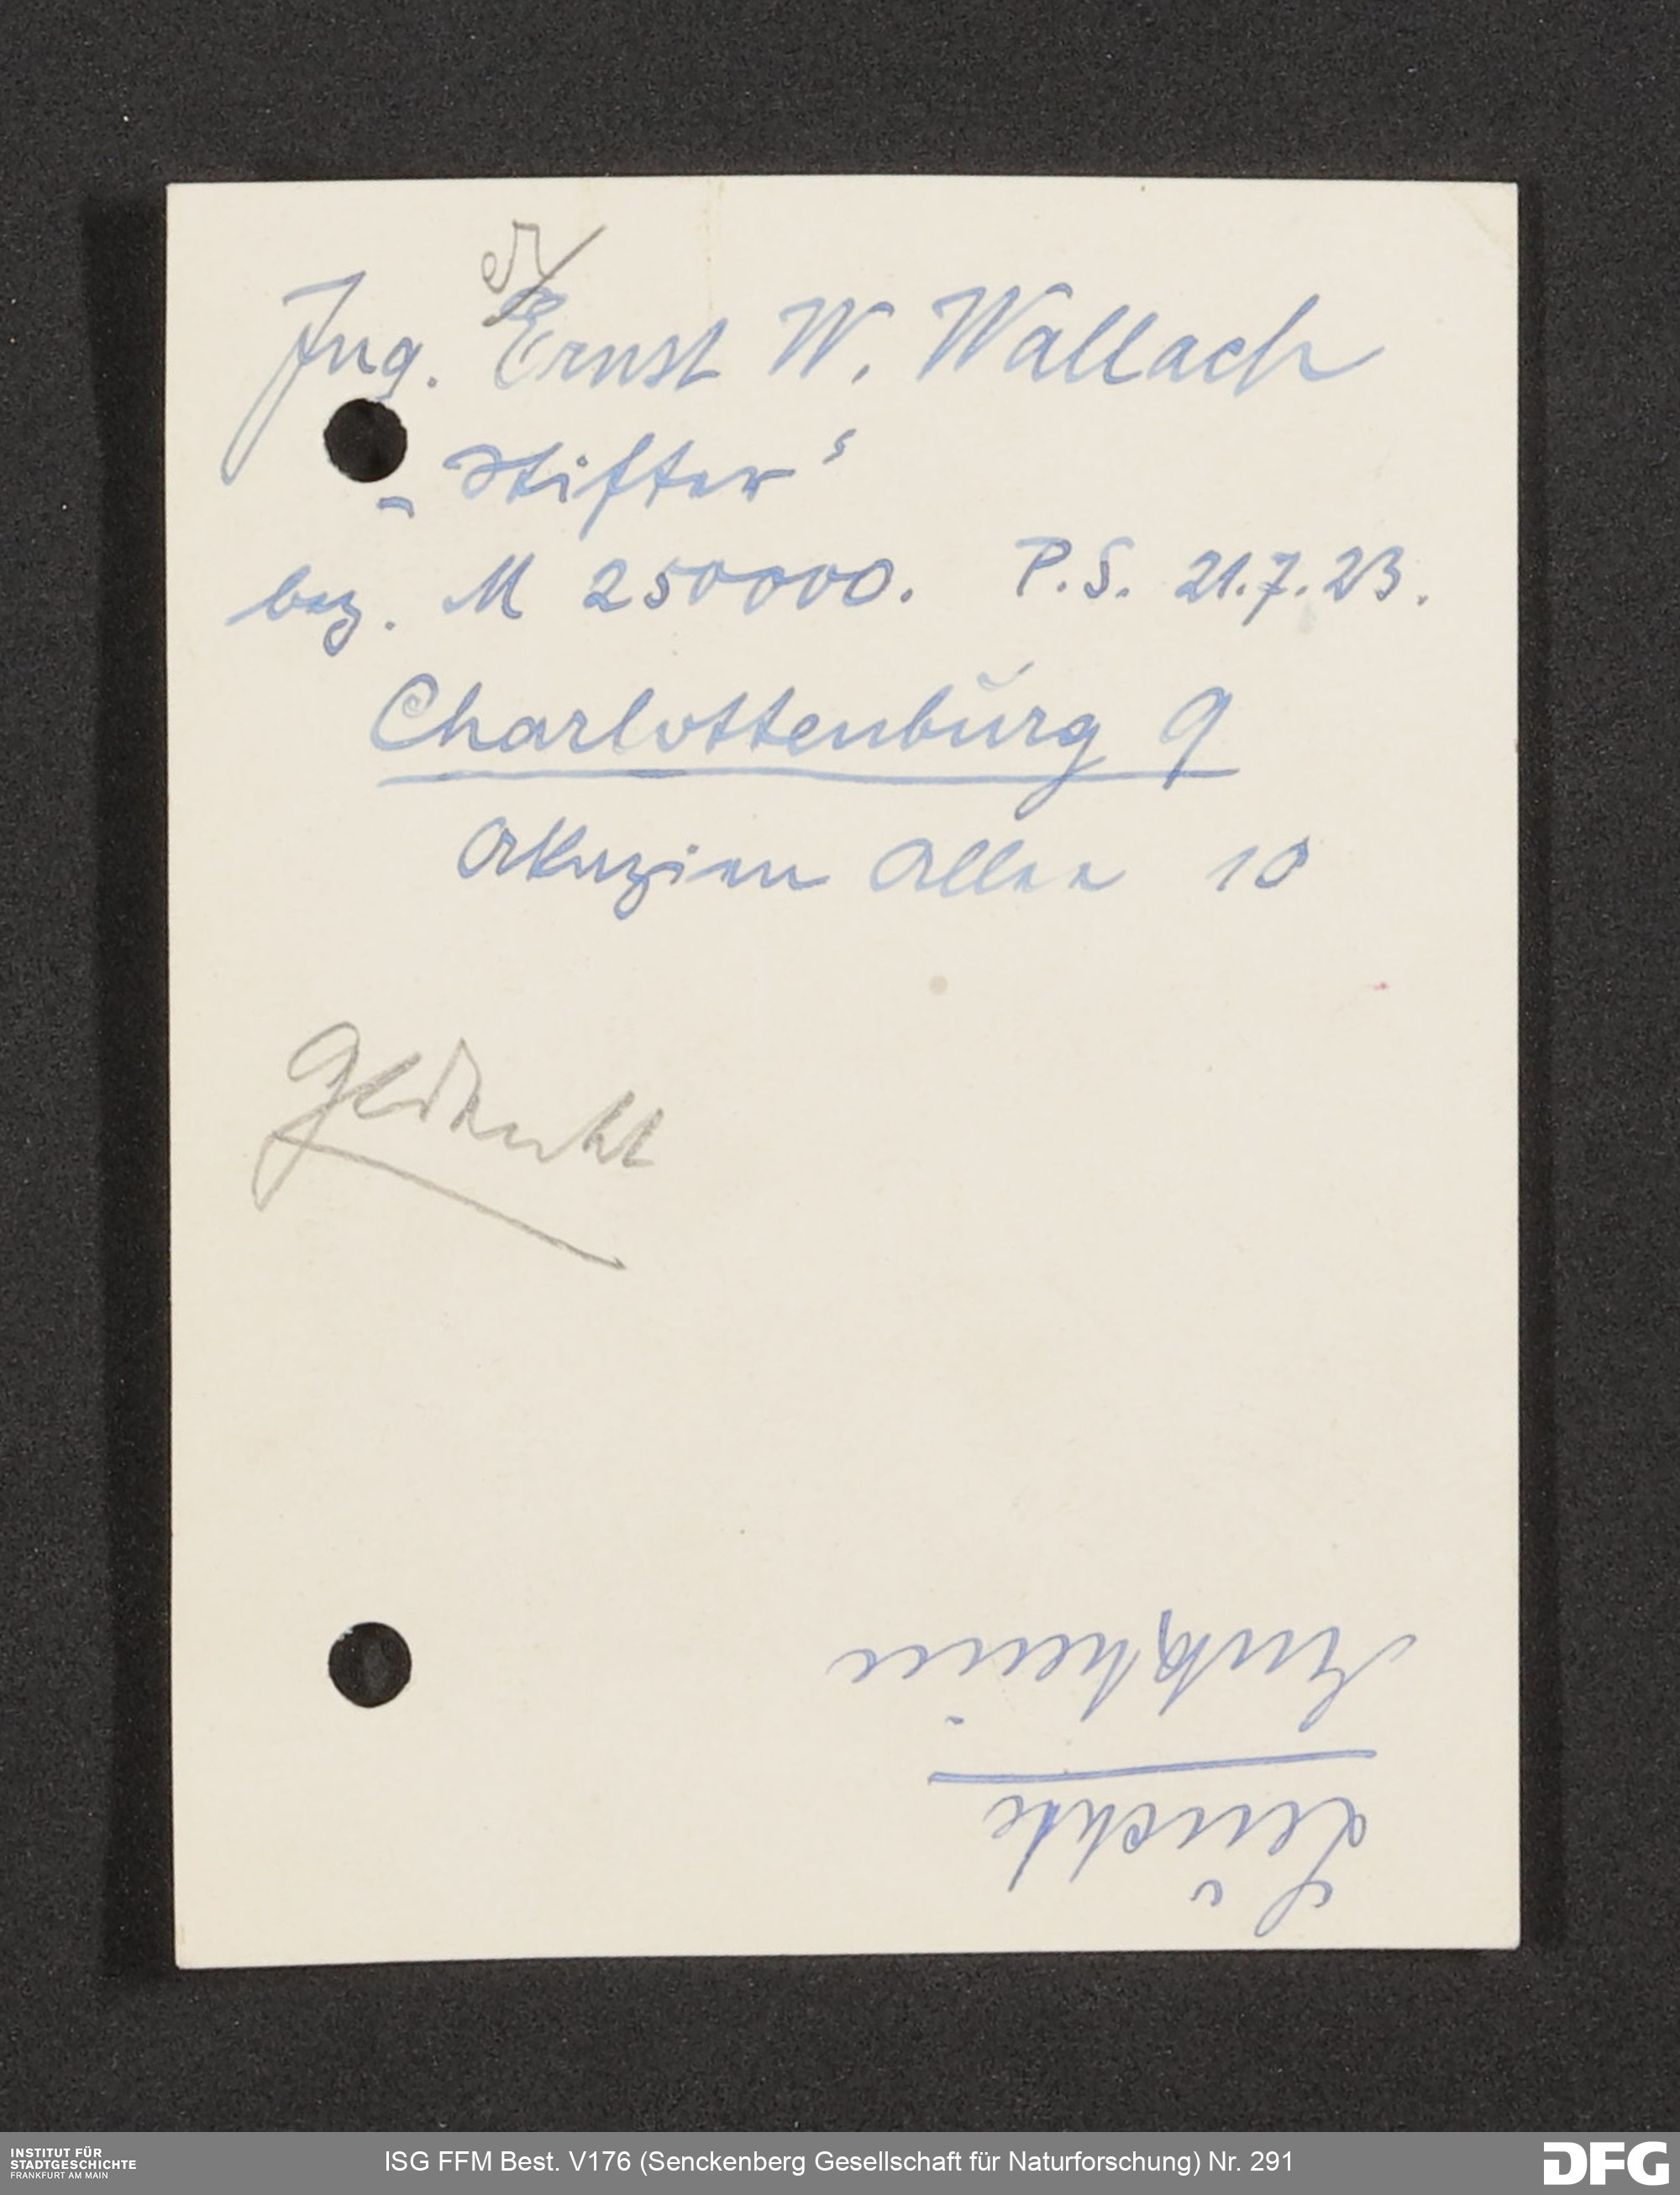 Ing. Ernst W. Wallach
„Stifter“
bez. M 250000. P.S. 21.7.23.
Charlottenburg 9
Akazien Allee 10
gedruckt
INSTITUT FÜR
STADTGESCHICHTE
FRANKFURT AM MAIN
ISG FFM Best. V176 (Senckenberg Gesellschaft für Naturforschung) Nr. 291
DFG